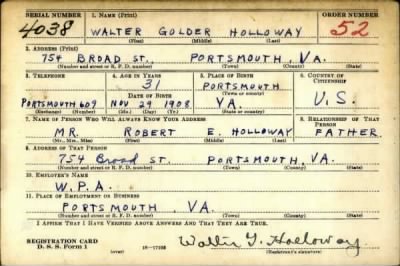 SERIAL NUMBER 1. NAME (Print) ORDER NUMBER
4038 WALTER GOLDER HOLLOWAY 52
(First) (Middle) (Last)
2. ADDRESS (Print)
754 BROAD ST., PORTSMOUTH, VA.
(Number and street or R. F. D. number) (Town) (County) (State)
3. TELEPHONE 4. AGE IN YEARS 5. PLACE OF BIRTH 6. COUNTRY OF CITIZENSHIP
31 PORTSMOUTH
DATE OF BIRTH (Town or county)
PORTSMOUTH 609 NOV 29 1908 VA. U.S.
(Exchange) (Number) (Mo.) (Day) (Yr.) (State or country)
7. NAME OF PERSON WHO WILL ALWAYS KNOW YOUR ADDRESS 8. RELATIONSHIP OF THAT PERSON
MR. ROBERT E. HOLLOWAY FATHER
(Mr., Mrs., Miss) (First) (Middle) (Last)
9. ADDRESS OF THAT PERSON
754 Broad ST. PORTSMOUTH, VA.
(Number and street or R. F. D. number) (Town) (County) (State)
10. EMPLOYER'S NAME
W.P.A.
11. PLACE OF EMPLOYMENT OR BUSINESS
PORTSMOUTH, VA.
(Number and street or R. F. D. number) (Town) (County) (State)
I AFFIRM THAT I HAVE VERIFIED ABOVE ANSWERS AND THAT THEY ARE TRUE.
REGISTRATION CARD
D. S. S. Form 1 (over) Walter G. Holloway
(Registrant's signature)